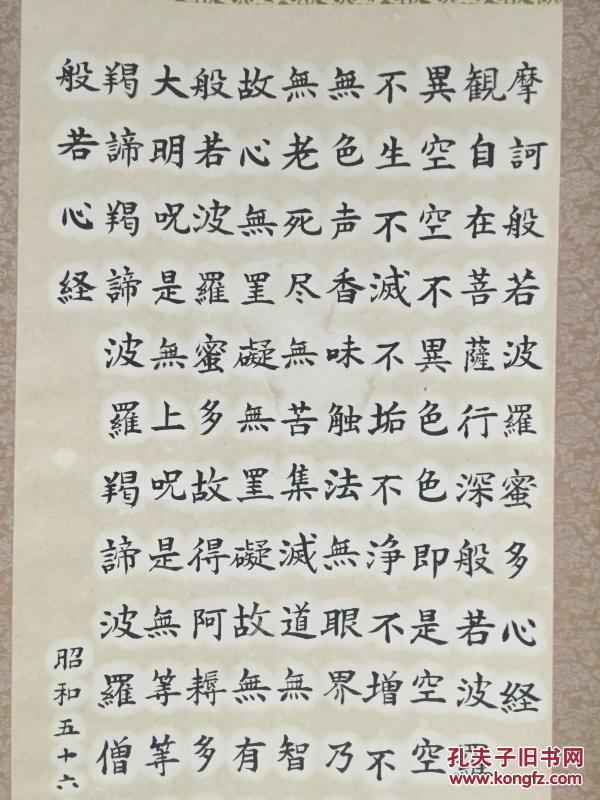 摩訶般若波羅蜜多心経
観自在菩薩行深般若波羅
異空空不異色色即是空空
不生不滅不垢不浄不増不
無色声香味触法無眼界乃
無老死尽無苦集滅道無智
故心無罣礙無罣礙故無有
般若波羅蜜多故得阿耨多
大明呪是無上呪是無等等
羯諦羯諦波羅羯諦波羅僧
般若心経
昭和五十六
孔夫子旧书网
www.kongfz.com